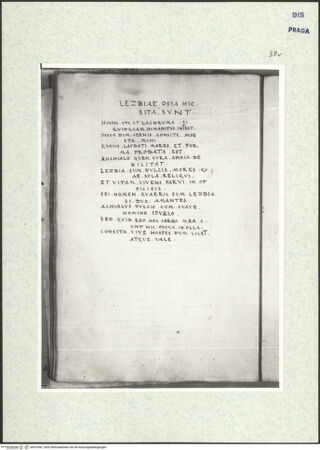 BIS
PRAGA
38v
LEZBIAE OSSA HIC
SITA SVNT
HOSPES STA ET LACHRVMA SI
QVIDQVAM HVMANITVS IN EST
OSSVA DVM CERNIS CONSITA MOE
STA MIHI
QVOIVS LAVDATI MORES ET FOR
MA PROBATA EST
ANCHIALO QVEM CVRA ANXIA DE
BILITAT
LEZBIA SVM DVLCIS MORES QV
AE SOLA RELIQVI
ET VITAM VIVENS PARVI IN OF
FICIEIS
SEI NOMEN QVAERIS SVM LEZBIA
SI DVO AMANTES
ACHIALVS DVLCIS CVM SVAVE
HOMINE SPVRIO
SED QVID EGO HOC CERNO MEA S
VNT HIC OSSVA IN OLLA
CONSITA VIVE HOSPES DVM LICET
ATQVE VALE